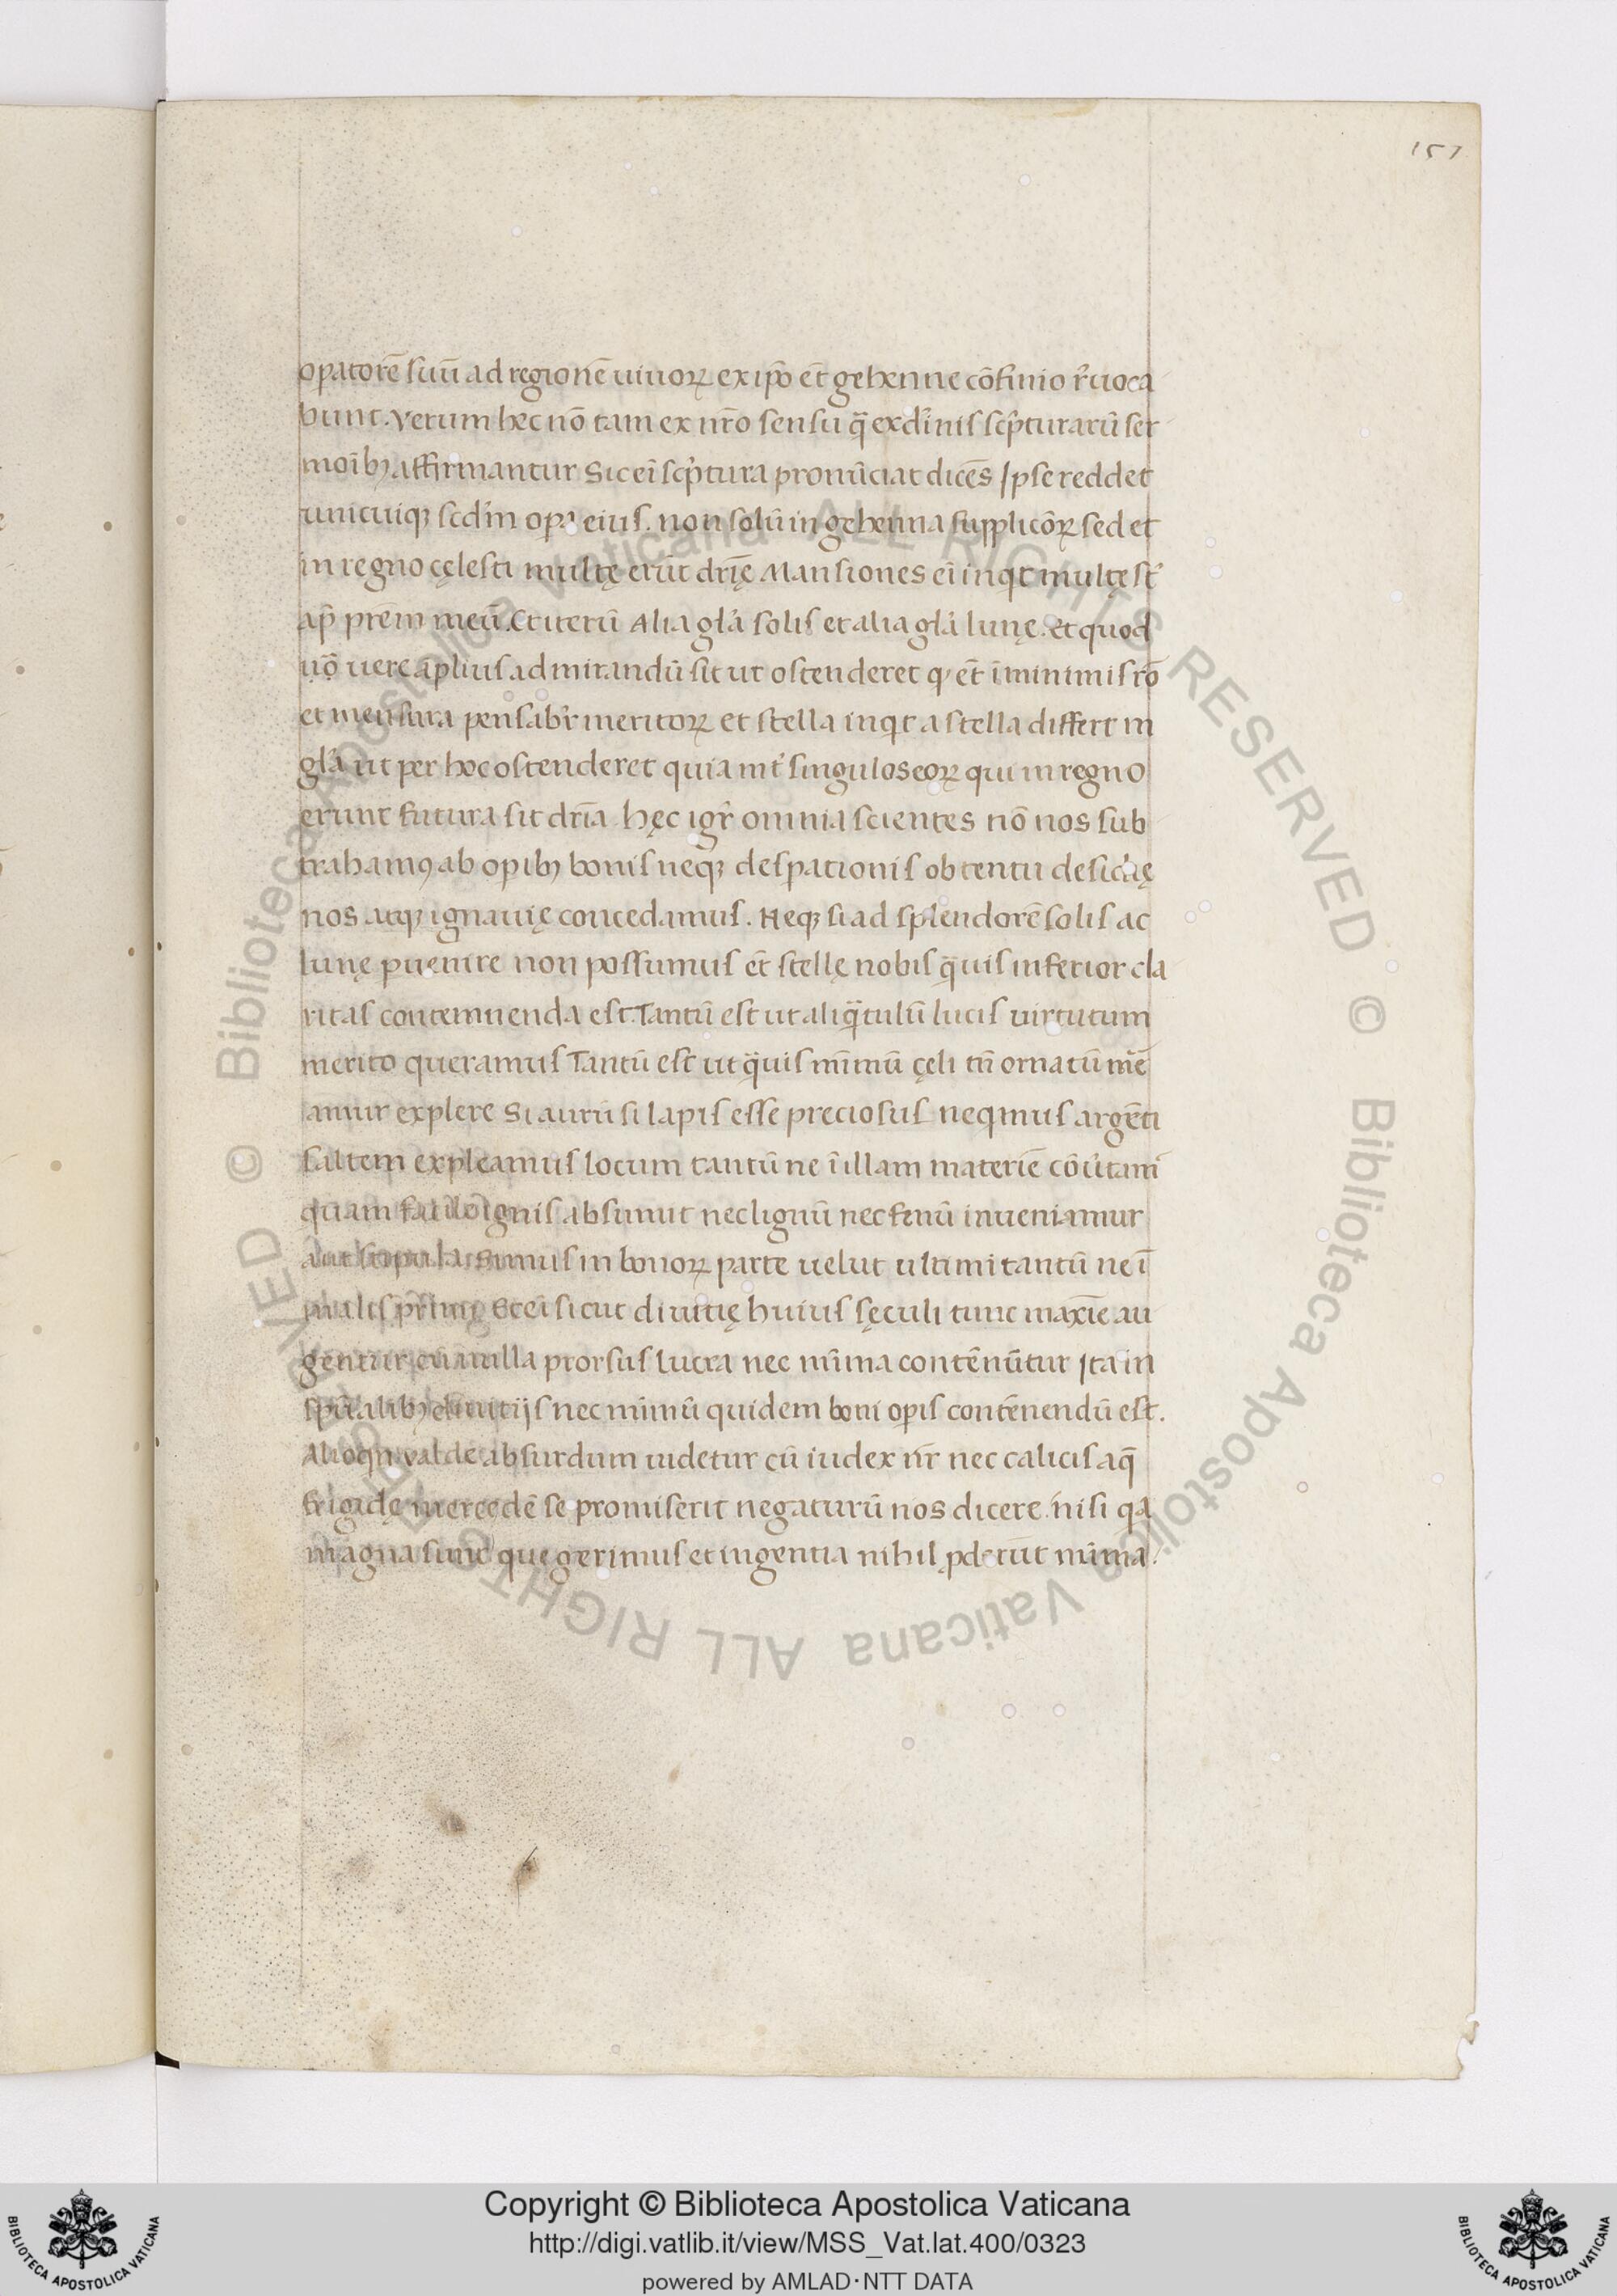 151
opatorē suū ad regionē uiuoꝝ ex ipo et̄ gehenne cōfinio r̄uoca
bunt. Verum hec nō tam ex nr̄o sensu q̄ ex diuinis scpturarū ser
moībꝫ affirmantur Sic ei scptura pronūciat dicēs Ipse reddet
unicuiqꝫ scdm opa eius. non solū in gehenna supplicōꝝ sed et
in regno cęlesti multę erūt drīę Mansiones ei inqt multę st
ap prēm meū. Et iterū Alia gla solis et alia gla lunę. et quod
uō uere aplius admirandū sit ut ostenderet q et̄ ī minimis rō
et mensura pensabr meritoꝝ et stella inqt a stella differt in
gla ut per hoc ostenderet quia int singulos eoꝝ qui in regno
erunt futura sit drīa hęc igr omnia scientes nō nos sub
trahamꝰ ab opibꝫ bonis neqꝫ despationis obtentu desidię
nos atqꝫ ignauię concedamus. Neqꝫ si ad splendorē solis ac
lunę puenire non possumus et̄ stellę nobis q̄uis inferior cla
ritas contemnenda est. Tantū est ut aliq̄tulū lucis uirtutum
merito queramus Tantū est ut q̄uis minimū cęli tn̄ ornatū mē
amur explere Si aurū si lapis esse preciosus neqmus argēti
saltem expleamus locum tantū ne ī illam materiē cōutam
quam facile ignis absumit nec lignū nec fenū inueniamur
aut stipula. Simus in bonoꝝ parte uelut ultimi tantū ne ī
malis primi Et ei sicut diuitię huius sęculi tunc maxīe au
gentur cū nulla prorsus lucra nec minima contēnūtur Ita in
spūalibꝫ diuitijs nec minimū quidem boni opis contēnendū est.
Alioqn ualde absurdum uidetur cū iudex nr̄ nec calicis aq̄
frigidę mercedē se promiserit negaturū nos dicere. nisi qa
magna sunt que gerimus et ingentia nihil ꝓderūt minima.
© Biblioteca Apostolica Vaticana ALL RIGHTS RESERVED © Biblioteca Apostolica Vaticana ALL RIGHTS RESERVED
Copyright © Biblioteca Apostolica Vaticana
http://digi.vatlib.it/view/MSS_Vat.lat.400/0323
powered by AMLAD·NTT DATA
BIBLIOTECA APOSTOLICA VATICANA
BIBLIOTECA APOSTOLICA VATICANA